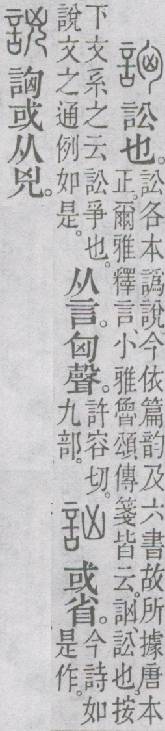 詾 訟也。訟各本譌說今依篇韵及六書故所據唐本
正。爾雅釋言、小雅魯頌傳箋皆云。訩訟也。按
下文系之云訟爭也。
說文之通例如是。从言。匈聲。許容切。
九部。訩 或省。今詩如
是作。
詾或从兇。